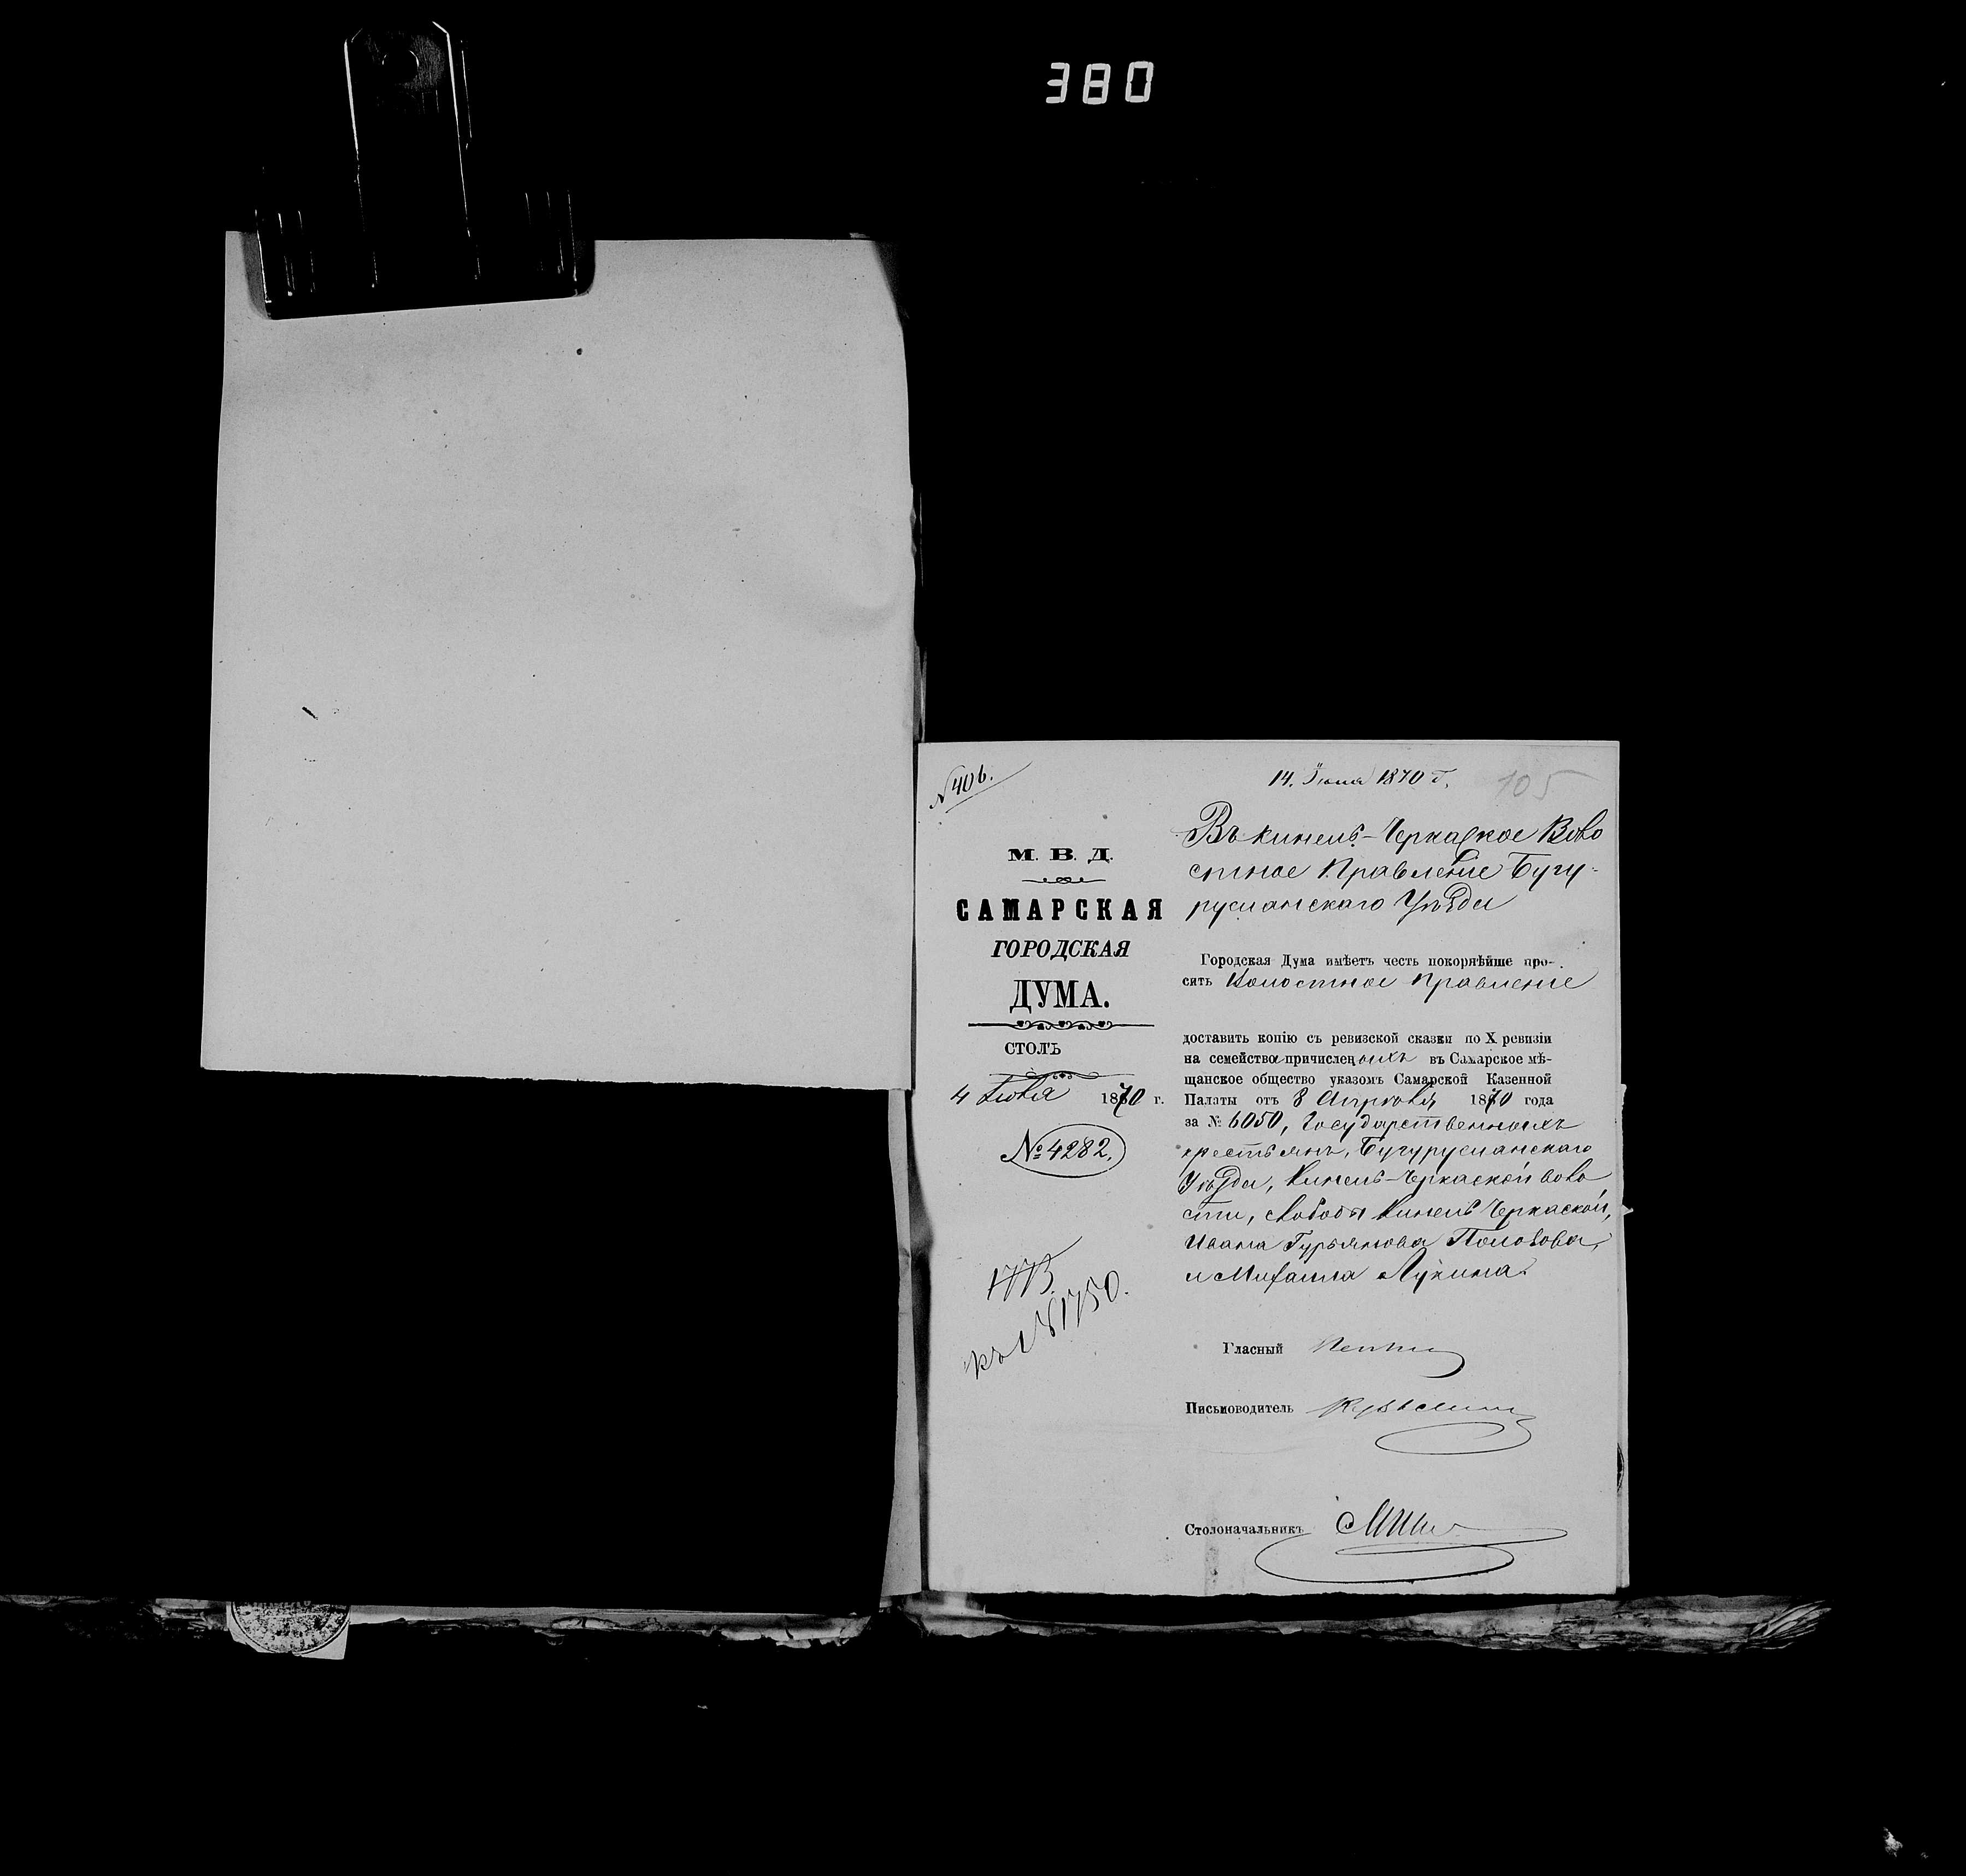 380
№ 406.
14. Іюня 1870 г.
105
Въ Кинель-Черкаское Воло
стное Правленіе Бугу-
русланскаго Уѣзда
М. В. Д.
САМАРСКАЯ
ГОРОДСКАЯ
ДУМА.
СТОЛЪ
4 1870 г.
№ 4282.
1773.
къ № 1750.
Городская Дума имѣетъ честь покорнѣйше про-
сить Волостное Правленіе
доставить копію съ ревизской сказки по X ревизіи
на семейства причисленныхъ въ Самарское мѣ-
щанское общество указомъ Самарской Казенной
Палаты отъ 8 Апрѣля 1870 года
за № 6050, Государственныхъ
крестьянъ, Бугурусланскаго
Уѣзда, Кинель-Черкаской воло
сти, слободы Кинель Черкаской,
Ивана Гурьянова Половова,
и Михаила Лукина.
Гласный
Письмоводитель
Столоначальникъ